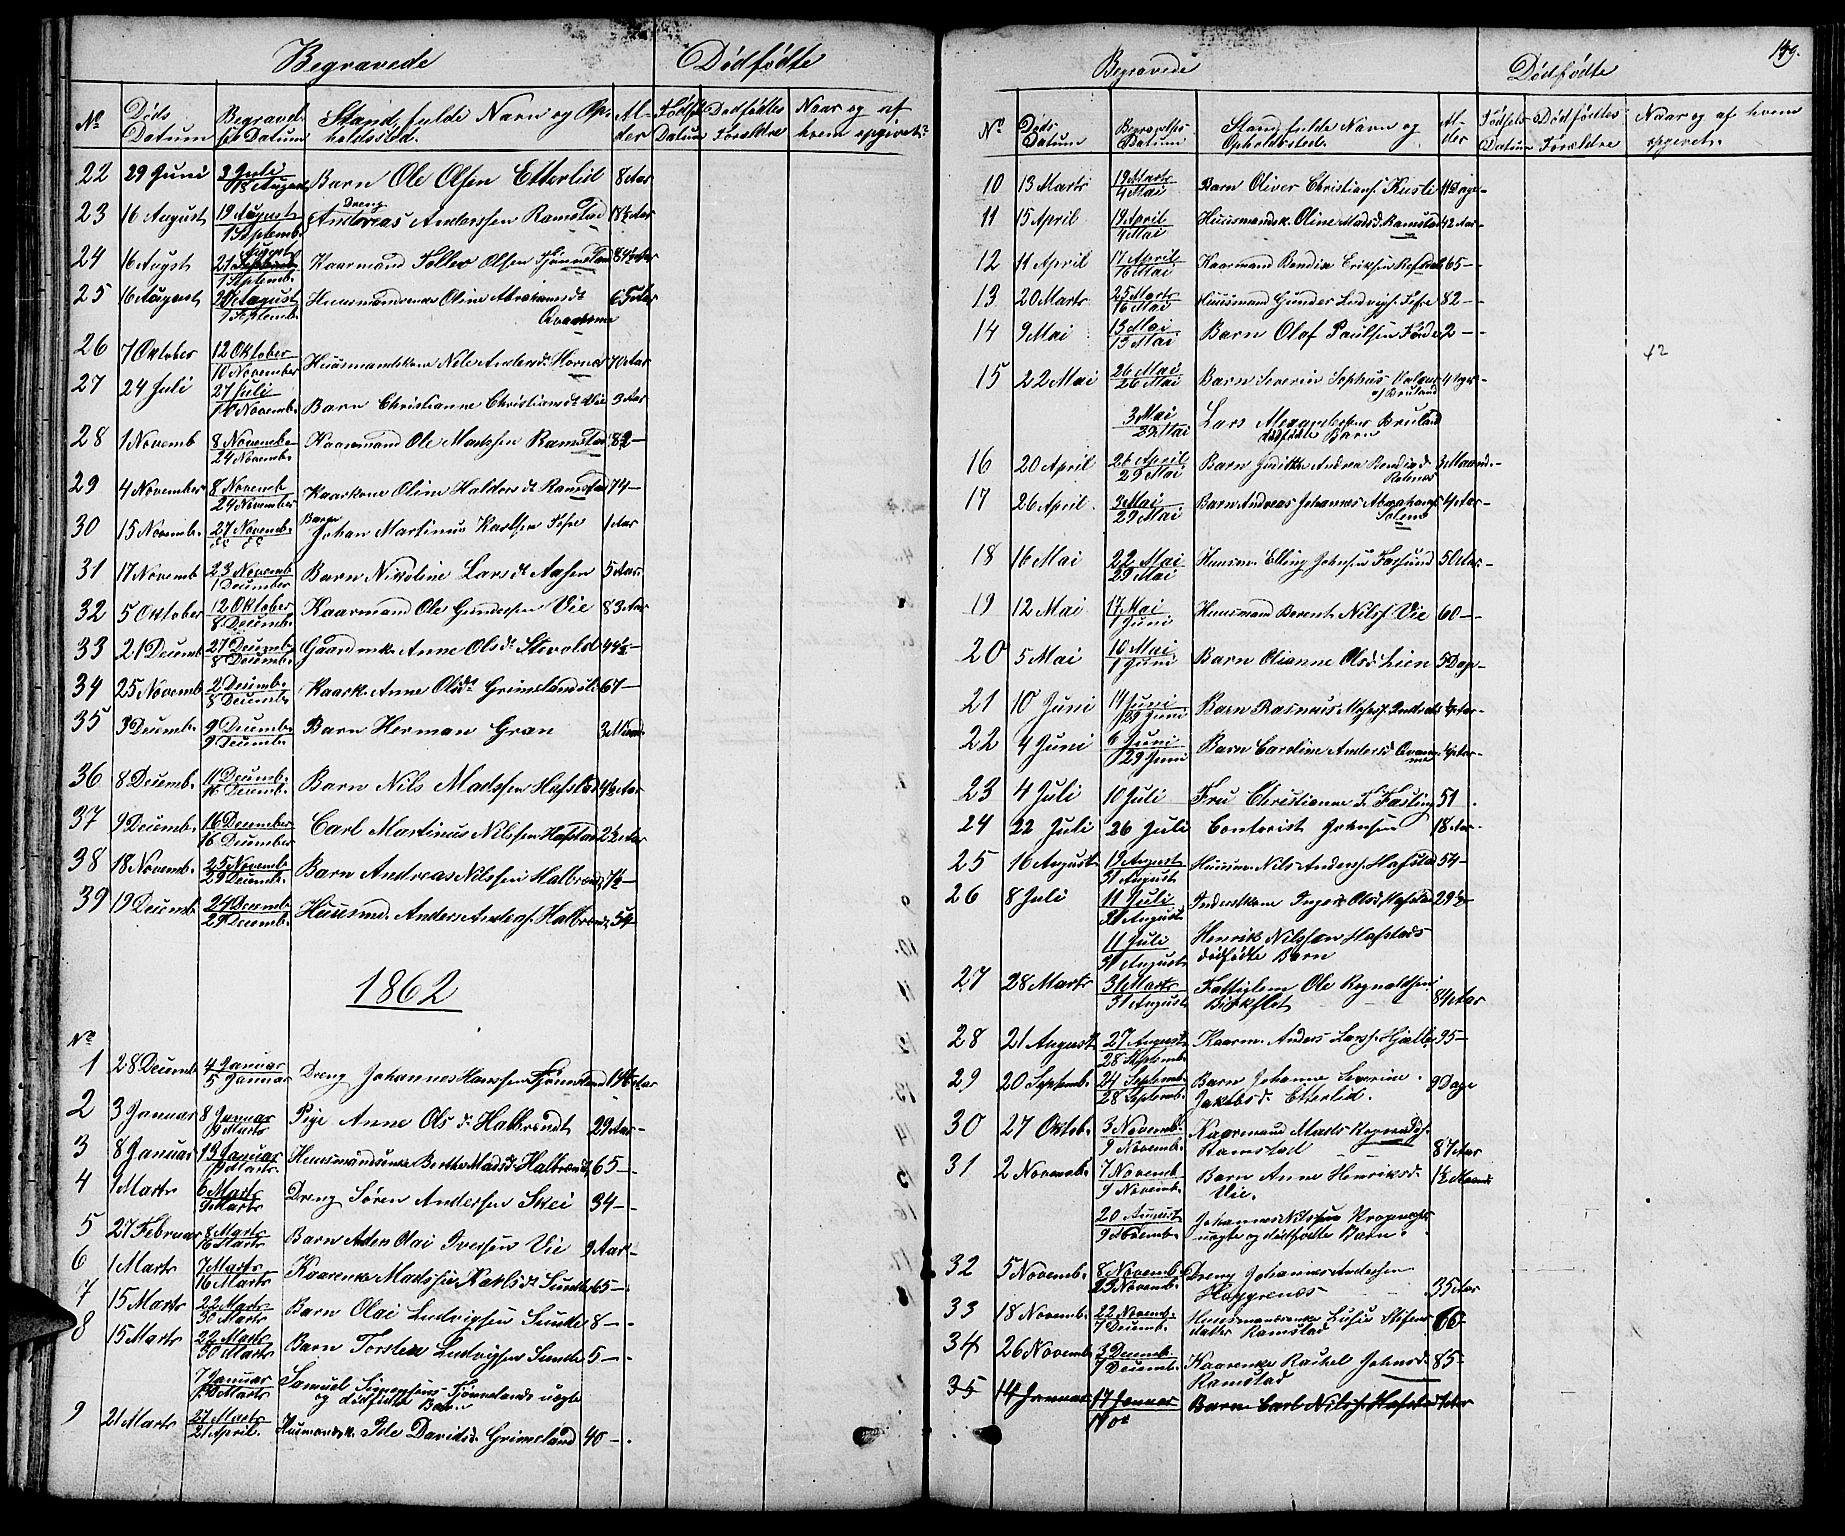 Begravede Dødfødte
No Døds Datum Begravelses Datum Stand, fulde Navn og Opholdssted. Alder Fødsels Datum Dødfødtes Forældre Naar og af hvem opgivet
22 29 Juni 3 Juli / 18 August Barn Ole Olsen Etterlid 8 Aar
23 16 August 19 August / 1 Septemb. Dreng Andreas Anderssen Ramstad 18½ Aar
24 16 Augst 21 August / 1 Septemb. Kaarmand Tollev Olsen Tjønneland 84½ Aar
25 16 August August / 1 Septemb. Huusmandsenke Oline Abrahamsdt 6 Aar
26 7 Oktober 12 Oktober / 10 November Huusmandskone Andersdt Hornes 70 Aar
27 24 Juli 27 Juli / Novemb. Barn Christianne Christiansdt Vie 3 Aar
28 1 Novemb 8 Novembr / 24 Novemb. Kaarmand Ole Madssen Ramstad 82 –
29 4 November 8 Novemb / 24 November Kaarkone Oline Haldorsdt Ramstad 74 –
30 15 Novemb. 27 Novemb. Barn Johan Martinus Karlsen 1 Aar
31 17 Novemb 23 Novemb / 1 December Barn Nikoline Larsdt Aasen 5 Aar
32 5 Oktober 12 Oktober / 8 Decemb. Kaarmand Ole Gundersen Vie 83 Aar
33 21 Decemb 27 Decemb. / 8 Decemb. Gaardmk. Anne Olsdt Stevold 44½ –
34 25 Novemb 2 Decemb. / 8 Decemb. Kaark. Anne Olsdt 67 –
35 3 Decemb. 9 Decemb. / 9 Decemb. Barn Herman Gran 3 Maand.
36 8 Decemb. 11 Decemb. / 16 Decemb. Barn Nils Madssen Hafstad 4½ Aar
37 9 Decemb. 16 December / 16 December Carl Martinus Nilssen Hafstad 2½ Aar
38 18 Novemb. 25 Novemb. / 29 Decemb. Barn Andreas Nilssen Halbrendt 7½ –
39 19 Decemb 24 Decemb. / 29 Decemb. Huusmd. Anders Anders. Halbrendt 54 –
1862
No
1 28 Decemb 4 Januar / 5 Januar Dreng Johannes Hanssen Tjønneland 14 Aar
2 3 Januar 8 Januar / 9 Marts Pige Anne Olsd. Halbrendt 29 Aar –
3 8 Januar 13 Januar / 9 Marts. Huusmandsenke Berthe Madsd. Halbrendt 65 –
4 1 Marts 6 Marts / 9 Marts Dreng Søren Anderssen Skei 34 –
5 27 Februar 8 Marts / 16 Marts Barn Olai Iversen Vie 9 Aar –
6 1 Marts 7 Marts / 16 Marts Kaarenke Karlsdt Sunde 65 –
7 15 Marts 22 Marts / 30 Marts Barn Olai Ludvigsen Sunde 8 –
8 15 Marts 22 Marts / 30 Marts Barn Torsten Ludvigsen Sunde 5 –
7 Januar / Marts Samuel Tjønnelands uægte og dødfødte Barn
9 21 Marts 27 Marts / 21 April. Husmandsk. Davidsd. Grimeland 40 –
149.
Begravede Dødfødte
No Døds Datum Begravelses Datum Stand, fulde Navn og Opholdssted. Alder Fødsels Datum Dødfødtes Forældre Naar og af hvem opgivet.
10 13 Marts 19 Marts / 4 Mai Barn Oliver Christians. Dage –
11 15 April 19 April / 4 Mai Huusmandsk. Oline Madsd. Ramstad 42 Aar –
12 11 April 17 April / 16 Mai Kaarmand Bendix Eriksen 65 –
13 20 Marts 25 Marts / 16 Mai Huusmand Gunder Ludvigs. 82 –
14 9 Mai 13 Mai / 13 Mai Barn Olaf Paulsen Førde 2 –
42
15 22 Mai 26 Mai / 26 Mai Barn Severin Sophus af Bruland
3 Mai / 29 Mai Lars Bruland dødfødte Barn
16 20 April 26 April / 29 Mai Barn Andrea 3 Maand.
17 26 April 3 Mai / 29 Mai Barn Andreas Johannes Abrahams. Solem 4 Aar –
18 16 Mai 22 Mai / 29 Mai Huusm. Elling Johnsen Farsund 50 Aar –
19 12 Mai 17 Mai / 1 Juni Huusmand Berent Nilss. Vie 60 –
20 5 Mai 10 Mai / 1 Juni Barn Olianne Olsd. Lien 5 Dage –
21 10 Juni 14 Juni / 29 Juni Barn Rasmus Aar –
22 4 Juni 6 Juni / 29 Juni Barn Caroline Andersd. Qvamme Aar –
23 4 Juli 10 Juli Fru Christianne F. Fasting 51
24 22 Juli 26 Juli Contorist Johnsen 18 Aar –
25 16 August 19 August / 31 August Huusm. Nils Anders. Hafstad 54 –
26 8 Juli 11 Juli / 31 August Inderstkone Olsd. Hafstad 29½ –
11 Juli / 31 August Henrik Nilssen Hafstads dødfødte Barn
27 28 Marts 31 Marts / 31 August Fattiglem Ole Rognaldsen Birkeflot 84 Aar
28 21 August 27 August / 28 Septemb. Kaarm. Anders Larss. Hjelle 95 –
29 20 Septemb. 24 Septemb. / 28 Septemb. Barn Johanne Severine Jakobsd. Etterlid. 9 Dage
30 27 Oktob. 3 Novemb. / 9 Novemb. Kaarmand Mads Rognalds. Ramstad 87 Aar
31 2 Novemb. 7 Novemb. / 9 Novemb. Barn Anne Henriksd. Vie. 1½ Maand
20 August / 9 Novemb. Johannes Nilssens uægte og dødfødte Barn.
32 5 Novemb. 8 Novemb. / 23 Novemb. Dreng Johannes Anderssen 35 Aar
33 18 Novemb. 22 Novemb. / 7 Decemb. Huusmandsenke datter Ramstad 66
34 26 Novemb 3 Decemb. / 7 Decemb. Kaarenke Rachel Johnsd. Ramstad 85 –
35 14 Januar 17 Januar Barn Carl Nilss. Hafstad Aar